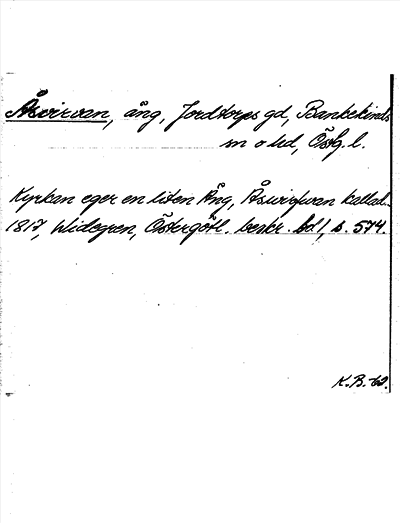 Åsvirvan, äng, Jordtorps gd, Bankekinds
sn o hd, Östg. l.
Kyrkan eger en liten Äng, Åswirfwan kallad.
1817, Widegren, Östergötl. beskr. bd 1, s. 574.
K.B. 60.